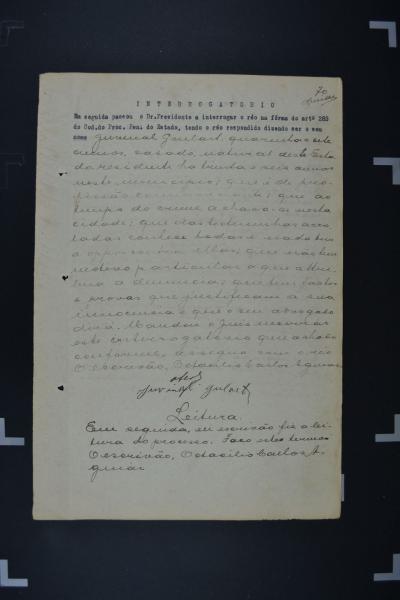 70
INTERROGATORIO
Em seguida passou o Dr. Presidente a interrogar o réo na fórma do artº 285
do Cod. do Proc. Penl do Estado, tendo o réo respondido dizendo ser o seu
nome Juvenal Gularte, quarenta e sete
annos, casado, natural deste Esta-
do residente ha trinta e seis annos
neste municipio; que é de pro-
fissão; que ao
tempo do crime achava-se nesta
cidade; que das testemunhas arro-
ladas conhece todas e nada tem
a oppor contra ellas; que não tem
motivo particular a que attri-
bua a denuncia; que tem factos
e provas que justificam a sua
innocencia e que o seu advogado
dirá. Mandou o Juiz encerrar
este interrogatorio que achado
conforme, assigna com o réo.
O escrivão, Octacilio Carlos
Juvenal Gularte
Leitura.
Em seguida, eu escrivão fiz a lei-
tura do processo. Faço este termo.
O escrivão, Octacilio Carlos A.